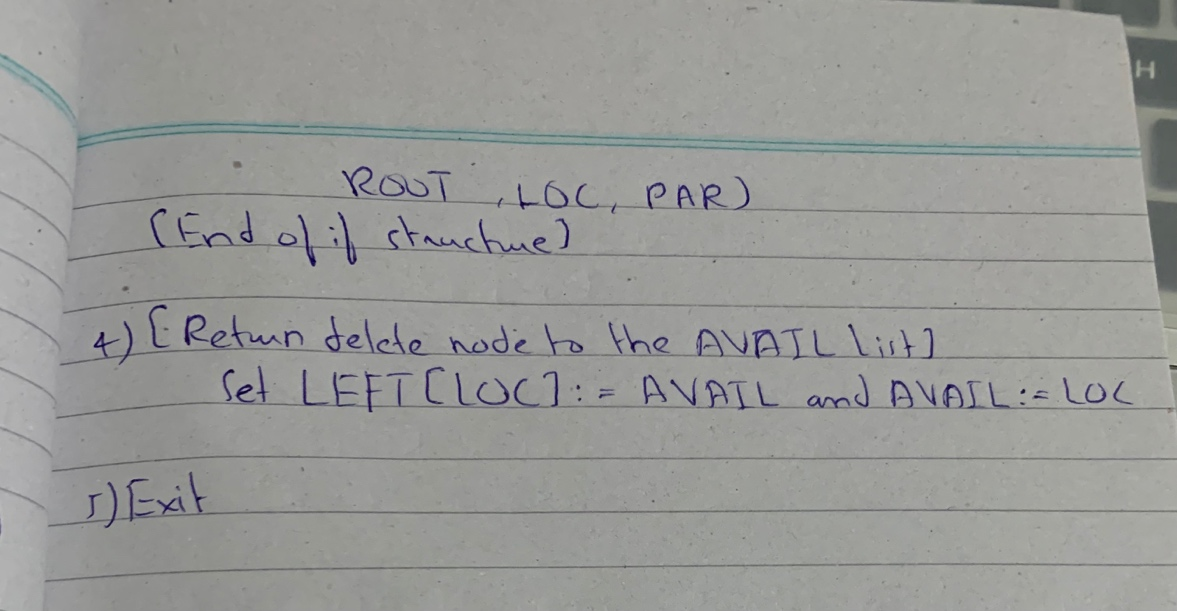 ROOT, LOC, PAR)
[End of if structure]
4) [Return delete node to the AVAIL list]
Set LEFT[LOC] := AVAIL and AVAIL := LOC
5) Exit
H